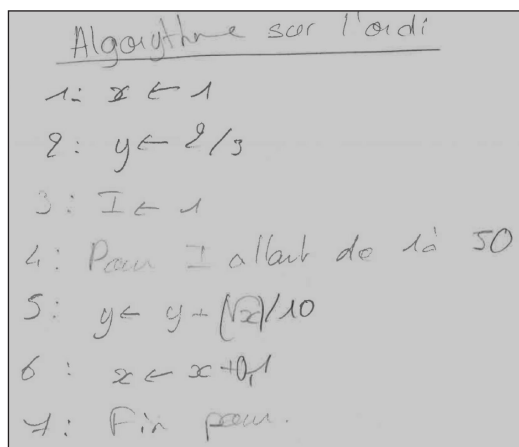 Algorythme sur l'ordi
1: x ← 1
2: y ← 2/3
3: I ← 1
4: Pour I allant de 1 à 50
5: y ← y + (√x)/10
6: x ← x+0,1
7: Fin pour.